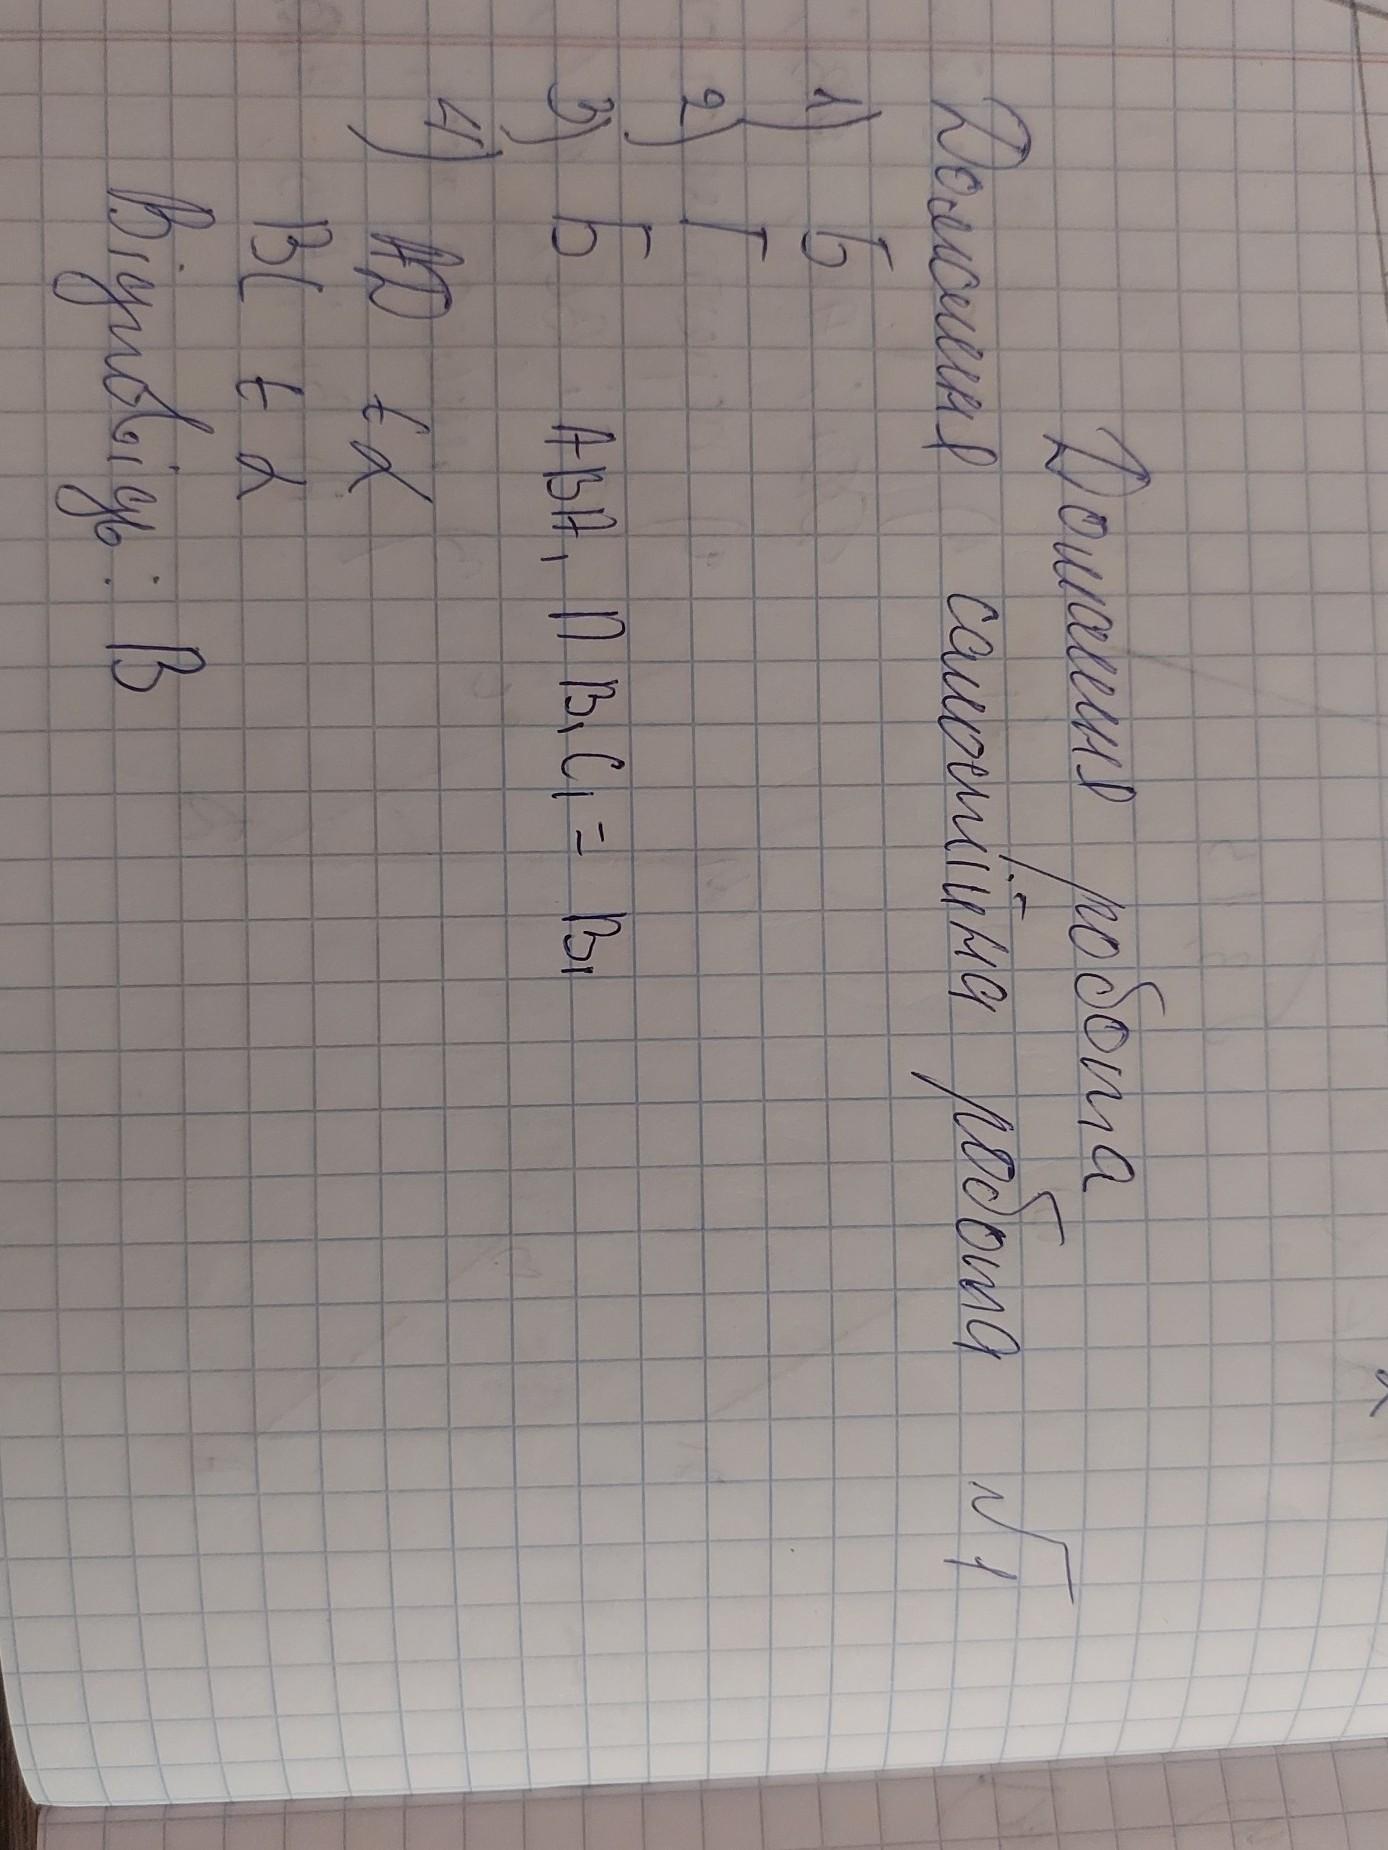 Домашня робота
Домашня самостійна робота №1
1) Б
2) Г
3) Б ABA₁ ∩ B₁C₁ = B₁
4) AD ∈ α
BC ∈ α
Відповідь: В